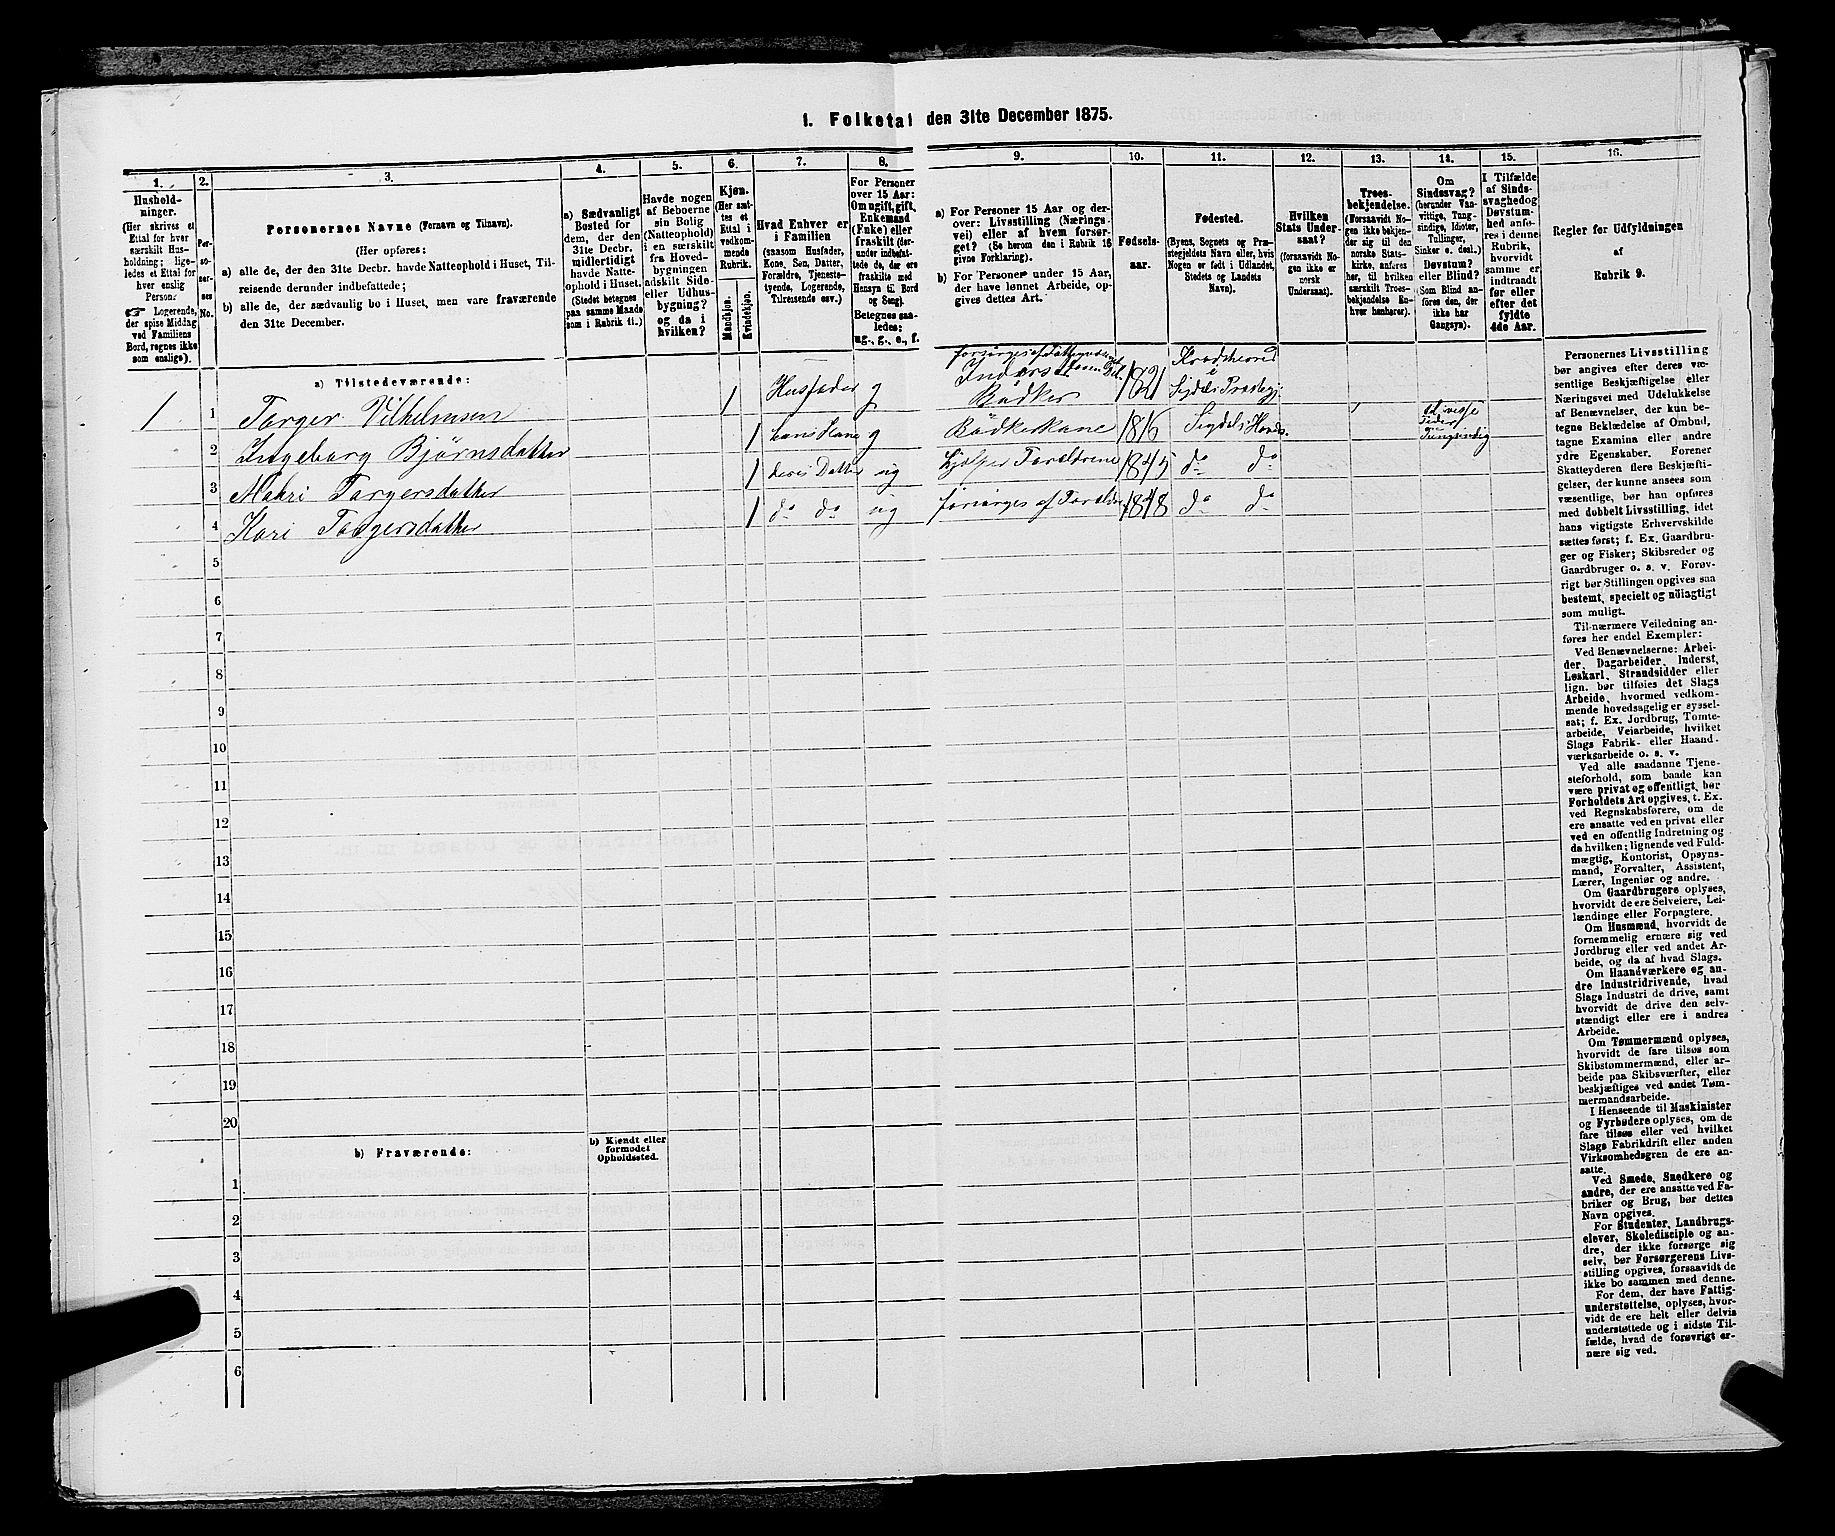 1. Folketal den 31te December 1875.
1.
2.
3.
4.
5.
6.
7.
8.
9.
10.
11.
12.
13.
14.
15.
16.
Hushold-
ninger.
(Her skrives et
Ettal for hver
særskilt Hus-
holdning; lige-
ledes et Ettal for
hver enslig
Person.
☛ Logerende,
der spise Middag
ved Familiens
Bord, regnes ikke
som enslige).
Per-
so-
ner-
nes
No.
Personernes Navne (Fornavn og Tilnavn).
(Her opføres:
a) alle de, der den 31te Decbr. havde Natteophold i Huset, Til-
reisende derunder indbefattede;
b) alle de, der sædvanlig bo i Huset, men vare fraværende
den 31te December.
a) Sædvanligt
Bosted for
dem, der den
31te Decbr.
midlertidigt
havde Natte-
ophold i Huset.
(Stedet betegnes
paa samme Maade
som i Rubrik 11.)
Havde nogen
af Beboerne
sin Bolig
(Natteophold)
i en særskilt
fra Hoved-
bygningen
adskilt Side-
eller Udhus-
bygning?
og da i
hvilken?
Kjøn.
(Her sæt-
tes et
Ettal i
vedkom-
mende
Rubrik.
Mandkjøn.
Kvindekjøn.
Hvad Enhver er
i Familien
(saasom Husfader,
Kone, Søn, Datter,
Forældre, Tjeneste-
tyende, Logerende,
Tilreisende osv.)
For Personer
over 15 Aar:
Om ugift, gift,
Enkemand
(Enke) eller
fraskilt (der-
under indbefat-
tede de, der ere
fraskilte med
Hensyn til Bord
og Seng).
Betegnes saa-
ledes:
ug., g., e., f.
a) For Personer 15 Aar og der-
over: Livsstilling (Nærings-
vei) eller af hvem forsør-
get? (Se herom den i Rubrik 16
givne Forklaring).
b) For Personer under 15 Aar,
der have lønnet Arbeide, op-
gives dettes Art.
Fødsels-
aar.
Fødested.
(Byens, Sognets og Præ-
stegjeldets Navn eller, hvis
Nogen er født i Udlandet,
Stedets og Landets
Navn).
Hvilken
Stats Under-
saat?
(forsaavidt No-
gen ikke er
norsk
Undersaat).
Troes-
bekjendelse.
(Forsaavidt No-
gen ikke bekjen-
der sig til den
norske Stats-
kirke, anføres
her, til hvilken
særskilt Troes-
bekjendelse En-
hver henhører).
Om
Sindssvag?
(herunder Van-
vittige, Tung-
sindige, Idioter,
Tullinger,
Sinker o. desl.)
Døvstum?
eller Blind?
(Som Blind an-
føres den, der
ikke har
Gangsyn).
I Tilfælde
af Sinds-
svaghed og
Døvstum-
hed anfø-
res i denne
Rubrik,
hvorvidt
samme er
indtraadt
før eller
efter det
fyldte
4de Aar.
Regler for Udfyldningen
af
Rubrik 9.
a) Tilstedeværende:
1 1 Torger Vilhelmsen 1 Husfader g forsørges af Fattigvæsenet
Inderst
Bødker 1821 Krødsherred
i
Sigdals Prestegj.
2 Ingeborg Bjørnsdatter 1 hans Kone g Bødkerkone 1816 Sigdals Hoveds. Tungsindig
3 Mahri Torgersdatter 1 deres Datter ug hjælper Forældrene 1845 do do
4 Kari Torgersdatter 1 do do ug forsørges af Foræld. 1848 do do
5
6
7
8
9
10
11
12
13
14
15
16
17
18
19
20
b) Fraværende:
b) Kjendt eller
formodet
Opholdssted.
1
2
3
4
5
6
Personernes Livsstilling
bør angives efter deres væ-
sentlige Beskjæftigelse eller
Næringsvei med Udelukkelse
af Benævnelser, der kun be-
tegne Beklædelse af Ombud,
tagne Examina eller andre
ydre Egenskaber. Forener
Skatteyderen flere Beskjæfti-
gelser, der kunne ansees som
væsentlige, bør han opføres
med dobbelt Livsstilling, idet
hans vigtigste Erhvervskilde
sættes først; f. Ex. Gaardbru-
ger og Fisker; Skibsreder og
Gaardbruger o. s. v. Forøv-
rigt bør Stillingen opgives saa
bestemt, specielt og nöiagtigt
som muligt.
Til nærmere Veiledning an-
føres her endel Exempler:
Ved Benævnelserne: Arbei-
der, Dagarbeider, Inderst,
Løskarl, Strandsidder eller
lign. bør tilføies det Slags
Arbeide, hvormed vedkom-
mende hovedsagelig er syssel-
sat; f. Ex. Jordbrug, Tomte-
arbeide, Veiarbeide, hvilket
Slags Fabrik- eller Haand-
værksarbeide o. s. v.
Ved alle saadanne Tjene-
steforhold, som baade kan
være privat og offentligt, bør
Forholdets Art opgives, t. Ex.
ved Regnskabsførere, om de
ere ansatte ved en privat eller
ved en offentlig Indretning og
da hvilken; lignende ved Fuld-
mægtig, Kontorist, Opsyns-
mand, Forvalter, Assistent,
Lærer, Ingeniør og andre.
Om Gaardbrugere oplyses,
hvorvidt de ere Selveiere, Lei-
lændinge eller Forpagtere.
Om Husmænd, hvorvidt de
fornemmelig ernære sig ved
Jordbrug eller ved andet Ar-
beide, og da af hvad Slags.
Om Haandværkere og an-
dre Industridrivende, hvad
Slags Industri de drive, samt
hvorvidt de drive den selv-
stændigt eller ere i andres
Arbeide.
Om Tømmermænd oplyses,
hvorvidt de fare tilsøs som
Skibstømmermænd, eller ar-
beide paa Skibsværfter, eller
beskjæftiges ved andet Tøm-
mermandsarbeide.
I Henseende til Maskinister
og Fyrbødere oplyses, om de
fare tilsøs eller ved hvilket
Slags Fabrikdrift eller anden
Virksomhedsgren de ere an-
satte.
Ved Smede, Snedkere og
andre, der ere ansatte ved Fa-
briker og Brug, bør dettes
Navn opgives.
For Studenter, Landbrugs-
elever, Skoledisciple og an-
dre, der ikke forsørge sig
selv, bør Forsørgerens Livs-
stilling opgives, forsaavidt de
ikke bo sammen med denne.
For dem, der have Fattig-
understøttelse, oplyses, hvor-
vidt de ere helt eller delvis
understøttede og i sidste Til-
fælde, hvad de forøvrigt er-
nære sig ved.